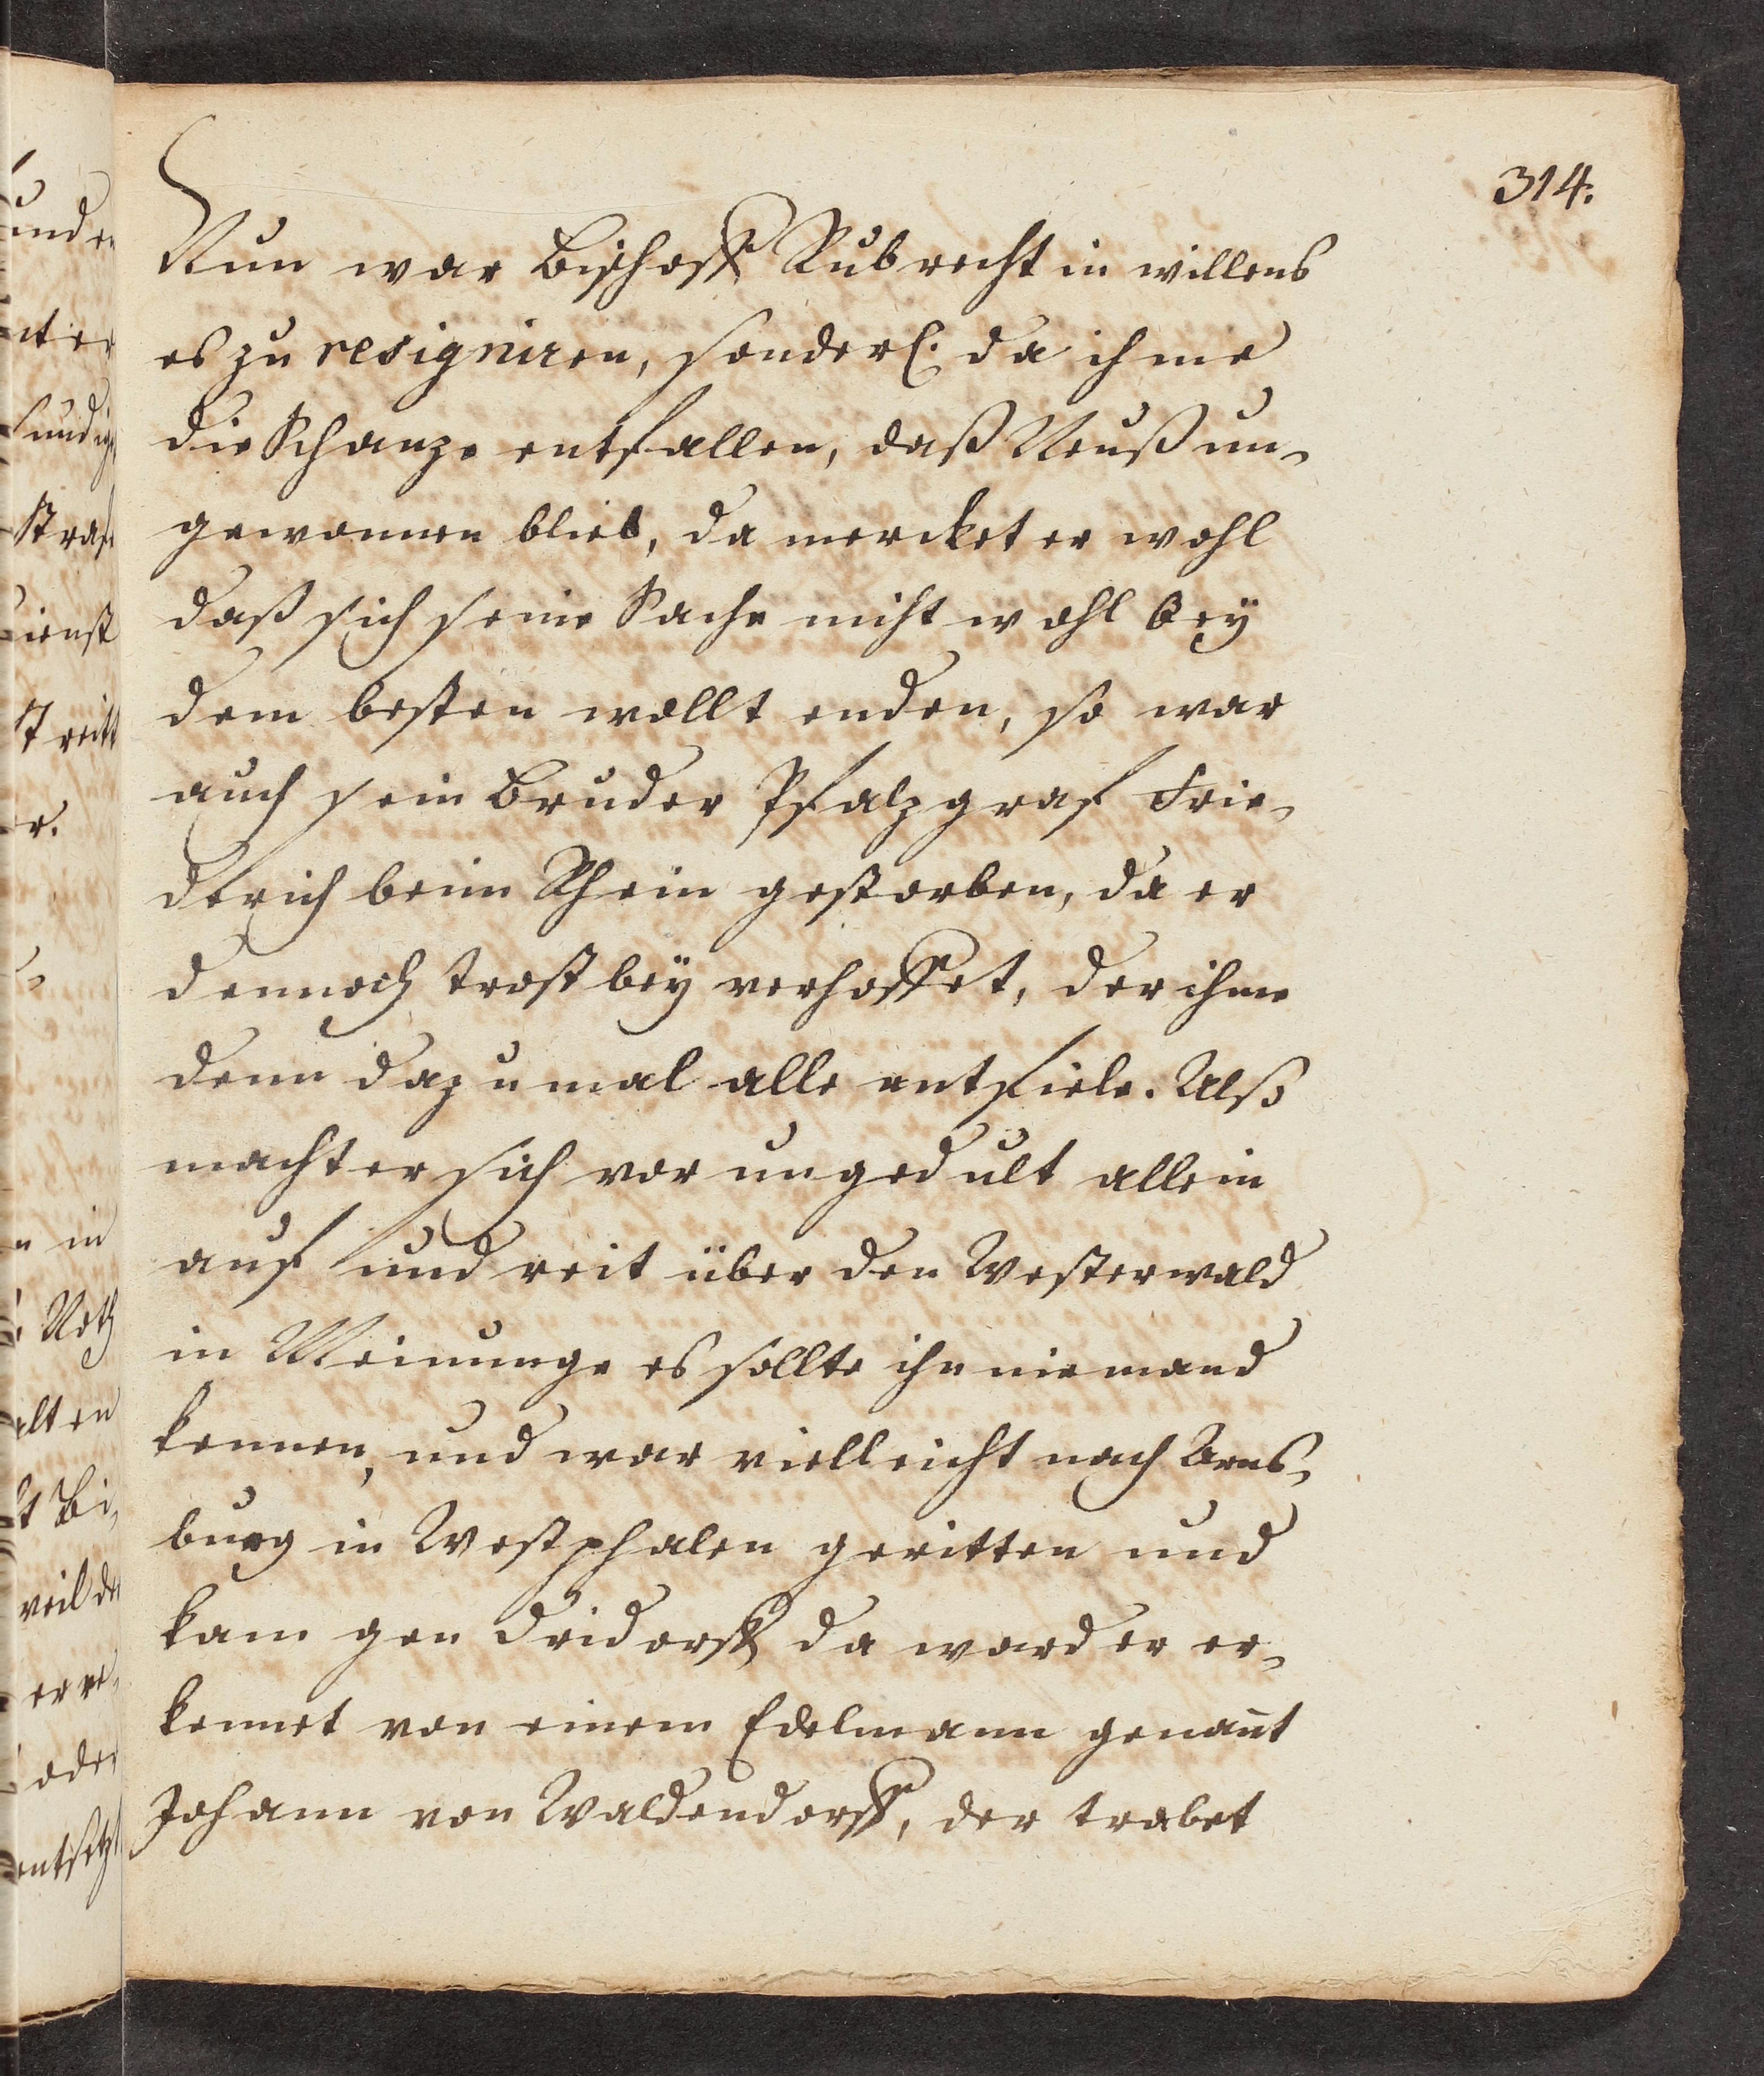 314.
Nun war Bischoff Rubrecht in willens
es zu resigniren, sonderl. da ihme
die Schanze entfallen, daß Neuß un-
gewonnen blieb, da mercket er wohl
daß sich seine Sache nicht wohl bey
dem besten wollt enden, so war
auch sein Bruder Pfalzgraf Frie-
derich beim Rhein gestorben, da er
dennoch trost bey verhoffet, der ihme
denn dazumal alle entfiele. Alß
macht er sich vor ungedult allein
auf und reit über den Westerwald
in Meinunge es sollte ihn niemand
kennen, und war vielleicht nach Arns-
burg in Westphalen geritten und
kam gen Dridorff da ward er er-
kennet von einem Edelmann genañt
Johann von Waldendorff, der trabet